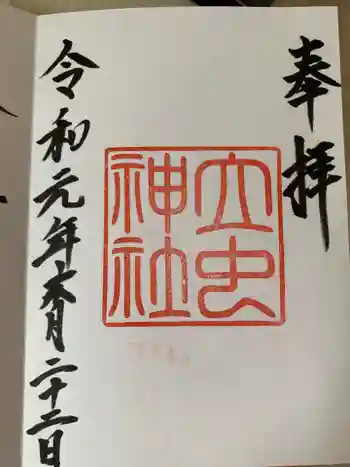 奉拝
大虫神社
令和元年六月二十二日